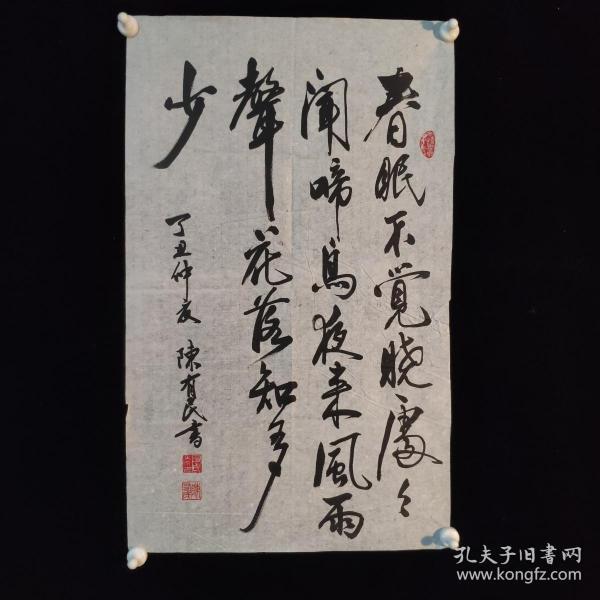 春眠不覺曉處々
聞啼鳥夜来風雨
聲花落知多
少
丁丑仲夏 陳有民書
孔夫子旧書网
www.kongfz.com